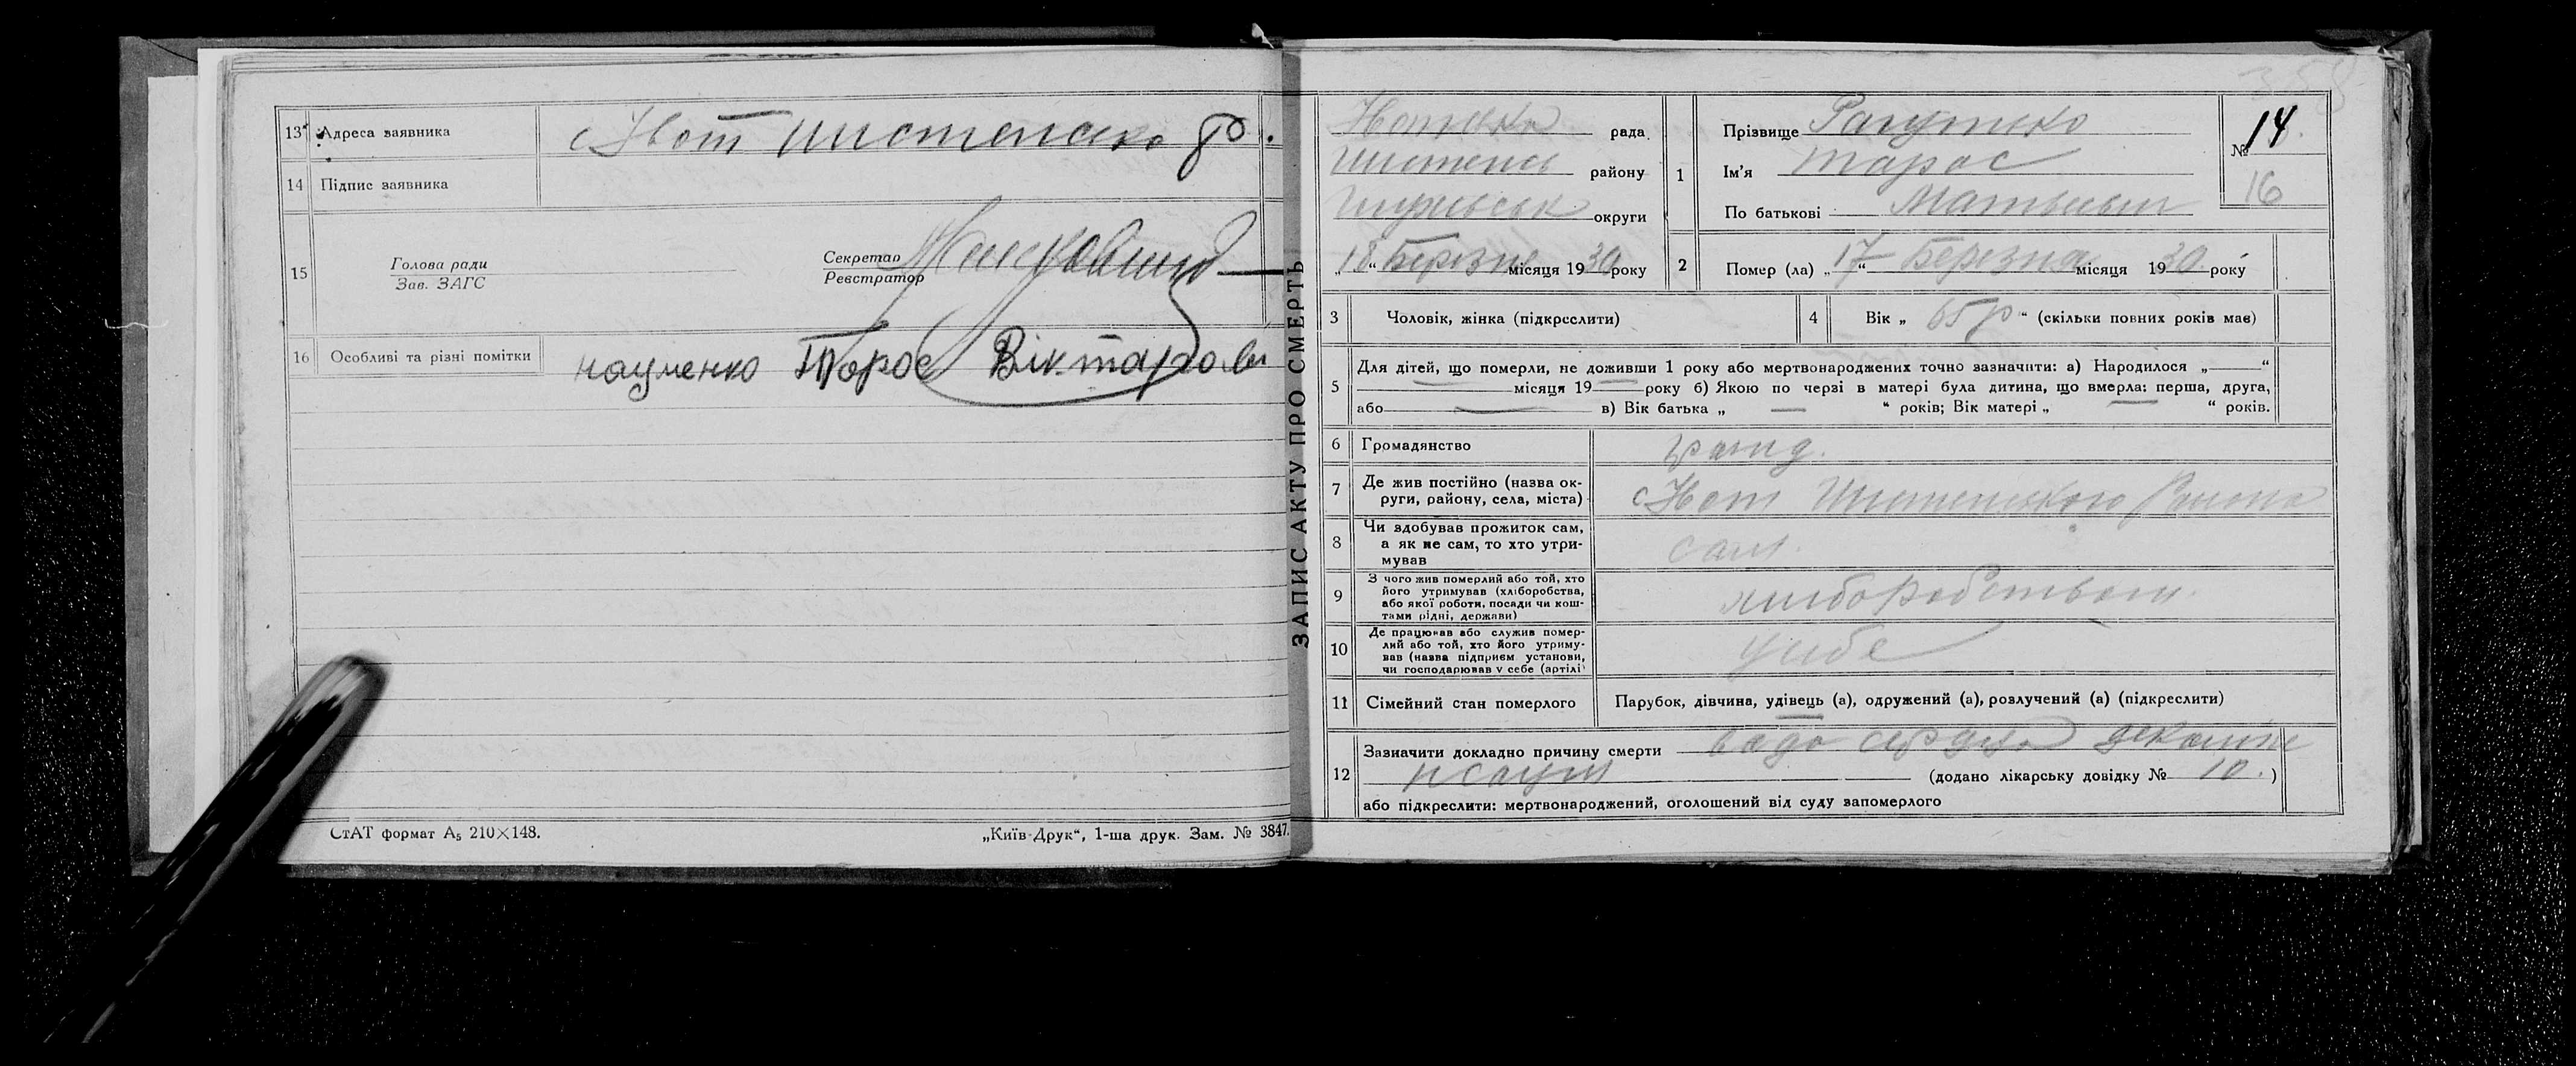 13 Адреса заявника с Хот Шишенсько Р.
14 Підпис заявника
15 Голова ради
Зав. ЗАГС
Секретар
Реєстратор
16 Особливі та різні помітки Науменко Тарас Вікторов
СтАТ формат А₅ 210×148.
„Київ-Друк“, 1-ша друк. Зам. № 3847.
ЗАПИС АКТУ ПРО СМЕРТЬ
рада
району
округи
„18“ Березня місяця 1930 року
1 Прізвище
Ім'я Тарас
По батькові
№ 14
16
2 Помер (ла) „17“ Березня місяця 1930 року
3 Чоловік, жінка (підкреслити)
4 Вік „65 р“ (скільки повних років має)
5 Для дітей, що померли, не доживши 1 року або мертвонароджених точно зазначити: а) Народилося „—“
місяця 19— року б) Якою по черзі в матері була дитина, що вмерла: перша, друга,
або — в) Вік батька „ — “ років; Вік матері „ — “ років.
6 Громадянство
7 Де жив постійно (назва ок-
руги, району, села, міста) с Хот
8 Чи здобував прожиток сам,
а як не сам, то хто утри-
мував сам.
9 З чого жив померлий або той, хто
його утримував (хліборобства,
або якої роботи, посади чи кош-
тами рідні, держави) хліборобством.
10 Де працював або служив помер-
лий або той, хто його утриму-
вав (назва підприєм установи,
чи господарював у себе (артілі) у себе
11 Сімейний стан померлого Парубок, дівчина, удівець (а), одружений (а), розлучений (а) (підкреслити)
12 Зазначити докладно причину смерти вада серця
(додано лікарську довідку № 10.)
або підкреслити: мертвонароджений, оголошений від суду запомерлого